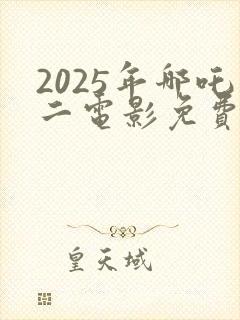 2025年哪吒
二電影免費
皇天域